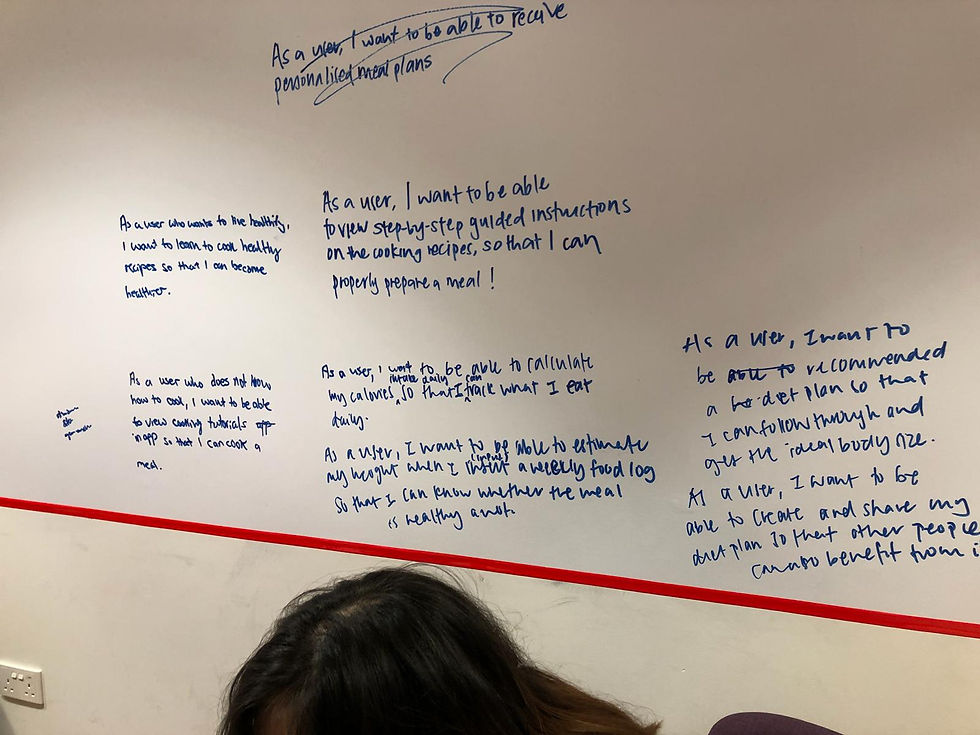 As a user, I want to be able to receive
personalised meal plans
As a user who wants to live healthily,
I want to learn to cook healthy
recipes so that I can become
healthier.
As a user, I want to be able
to view step-by-step guided instructions
on the cooking recipes, so that I can
properly prepare a meal!
As a user who does not know
how to cook, I want to be able
to view cooking tutorials app
in app so that I can cook a
meal.
As a user, I want to be able to calculate
intake daily can
my calories, so that I track what I eat
daily.
As a user, I want to be able to estimate
(input)
my height when I a weekly food log
so that I can know whether the meal
is healthy a not.
As a user, I want to
be able to recommended
a diet plan so that
I can follow through and
get the ideal body size.
As a user, I want to be
able to create and share my
diet plan so that other people
can also benefit from i